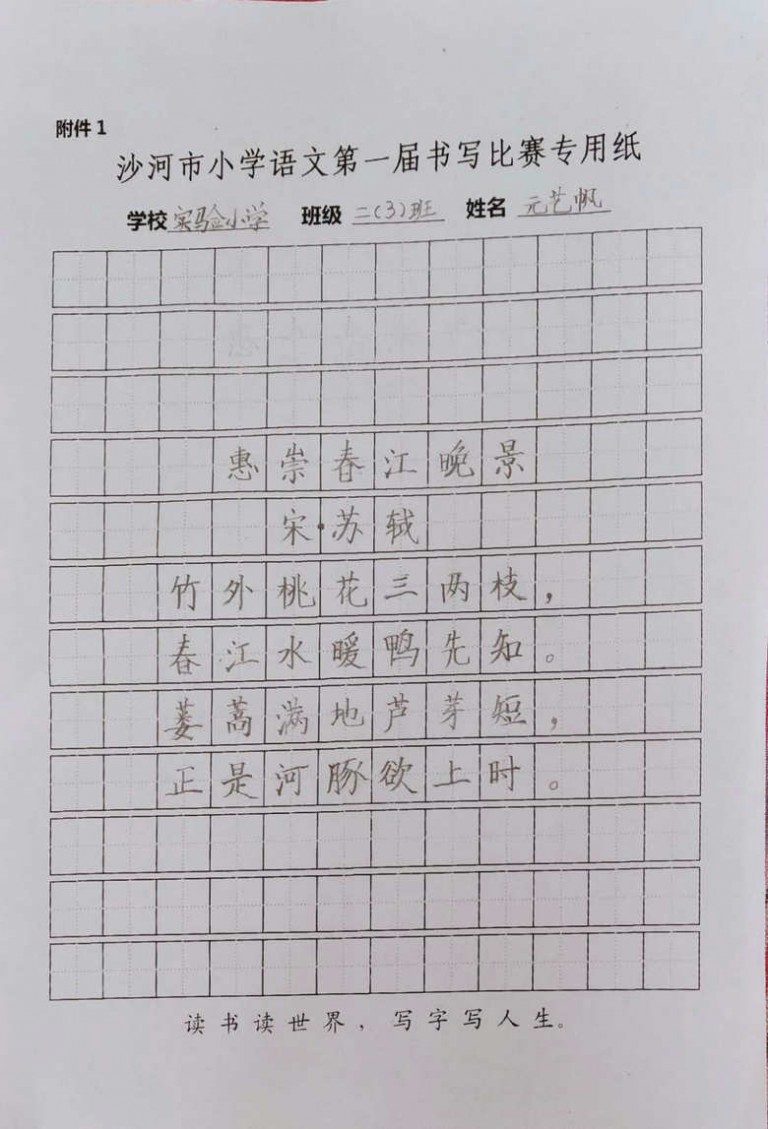 附件1
沙河市小学语文第一届书写比赛专用纸
学校 实验小学 班级 二(3)班 姓名 元艺帆
惠崇春江晚景
宋·苏轼
竹外桃花三两枝，
春江水暖鸭先知。
蒌蒿满地芦芽短，
正是河豚欲上时。
读书读世界，写字写人生。